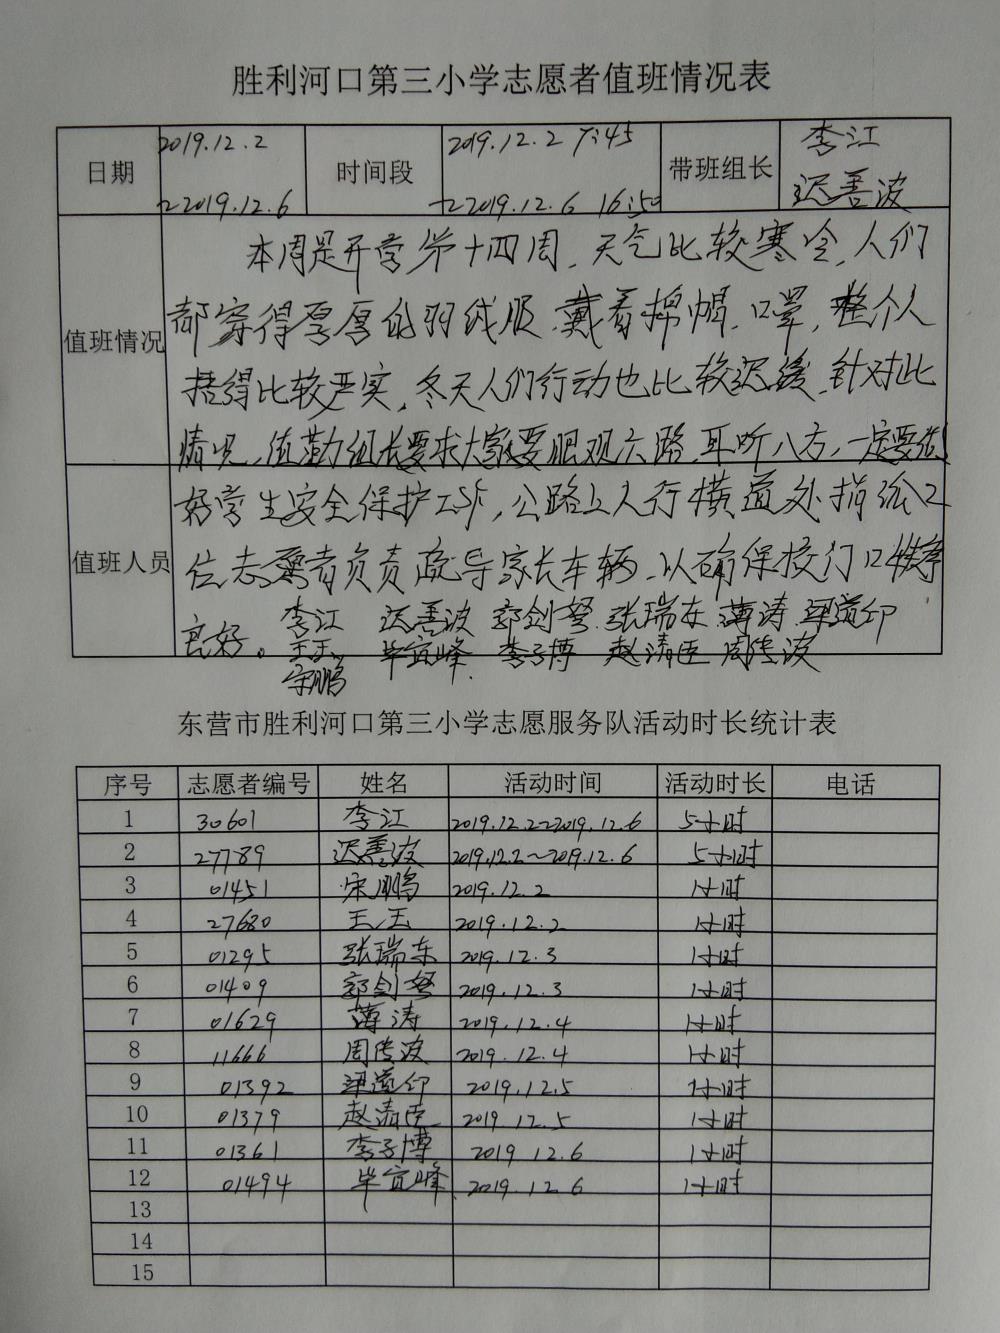 胜利河口第三小学志愿者值班情况表
日期 2019.12.2 ~2019.12.6 时间段 2019.12.2 7:45 ~2019.12.6 16:50 带班组长 李江 迟善波
值班情况
本周是开学第十四周、天气比较寒冷,人们
都穿得厚厚的羽绒服、戴着棉帽、口罩,整个人
捂得比较严实,冬天人们行动也比较迟缓、针对此
情况,值勤组长要求大家要眼观六路、耳听八方,一定要做
值班人员
好学生安全保护工作,公路上人行横道处指派2
位志愿者负责疏导家长车辆、以确保校门口秩序
良好。
李江 迟善波 郭剑努 张瑞东 薄涛 梁道印
王玉 毕宜峰 李子博 赵清臣 周传波
宋鹏
东营市胜利河口第三小学志愿服务队活动时长统计表
序号 志愿者编号 姓名 活动时间 活动时长 电话
1 30601 李江 2019.12.2~2019.12.6 5小时
2 27789 迟善波 2019.12.2~2019.12.6 5小时
3 01451 宋鹏 2019.12.2 1小时
4 27680 王玉 2019.12.2 1小时
5 01295 张瑞东 2019.12.3 1小时
6 01409 郭剑努 2019.12.3 1小时
7 01629 薄涛 2019.12.4 1小时
8 11666 周传波 2019.12.4 1小时
9 01392 梁道印 2019.12.5 1小时
10 01379 赵清臣 2019.12.5 1小时
11 01361 李子博 2019 12.6 1小时
12 01494 毕宜峰 2019.12.6 1小时
13
14
15